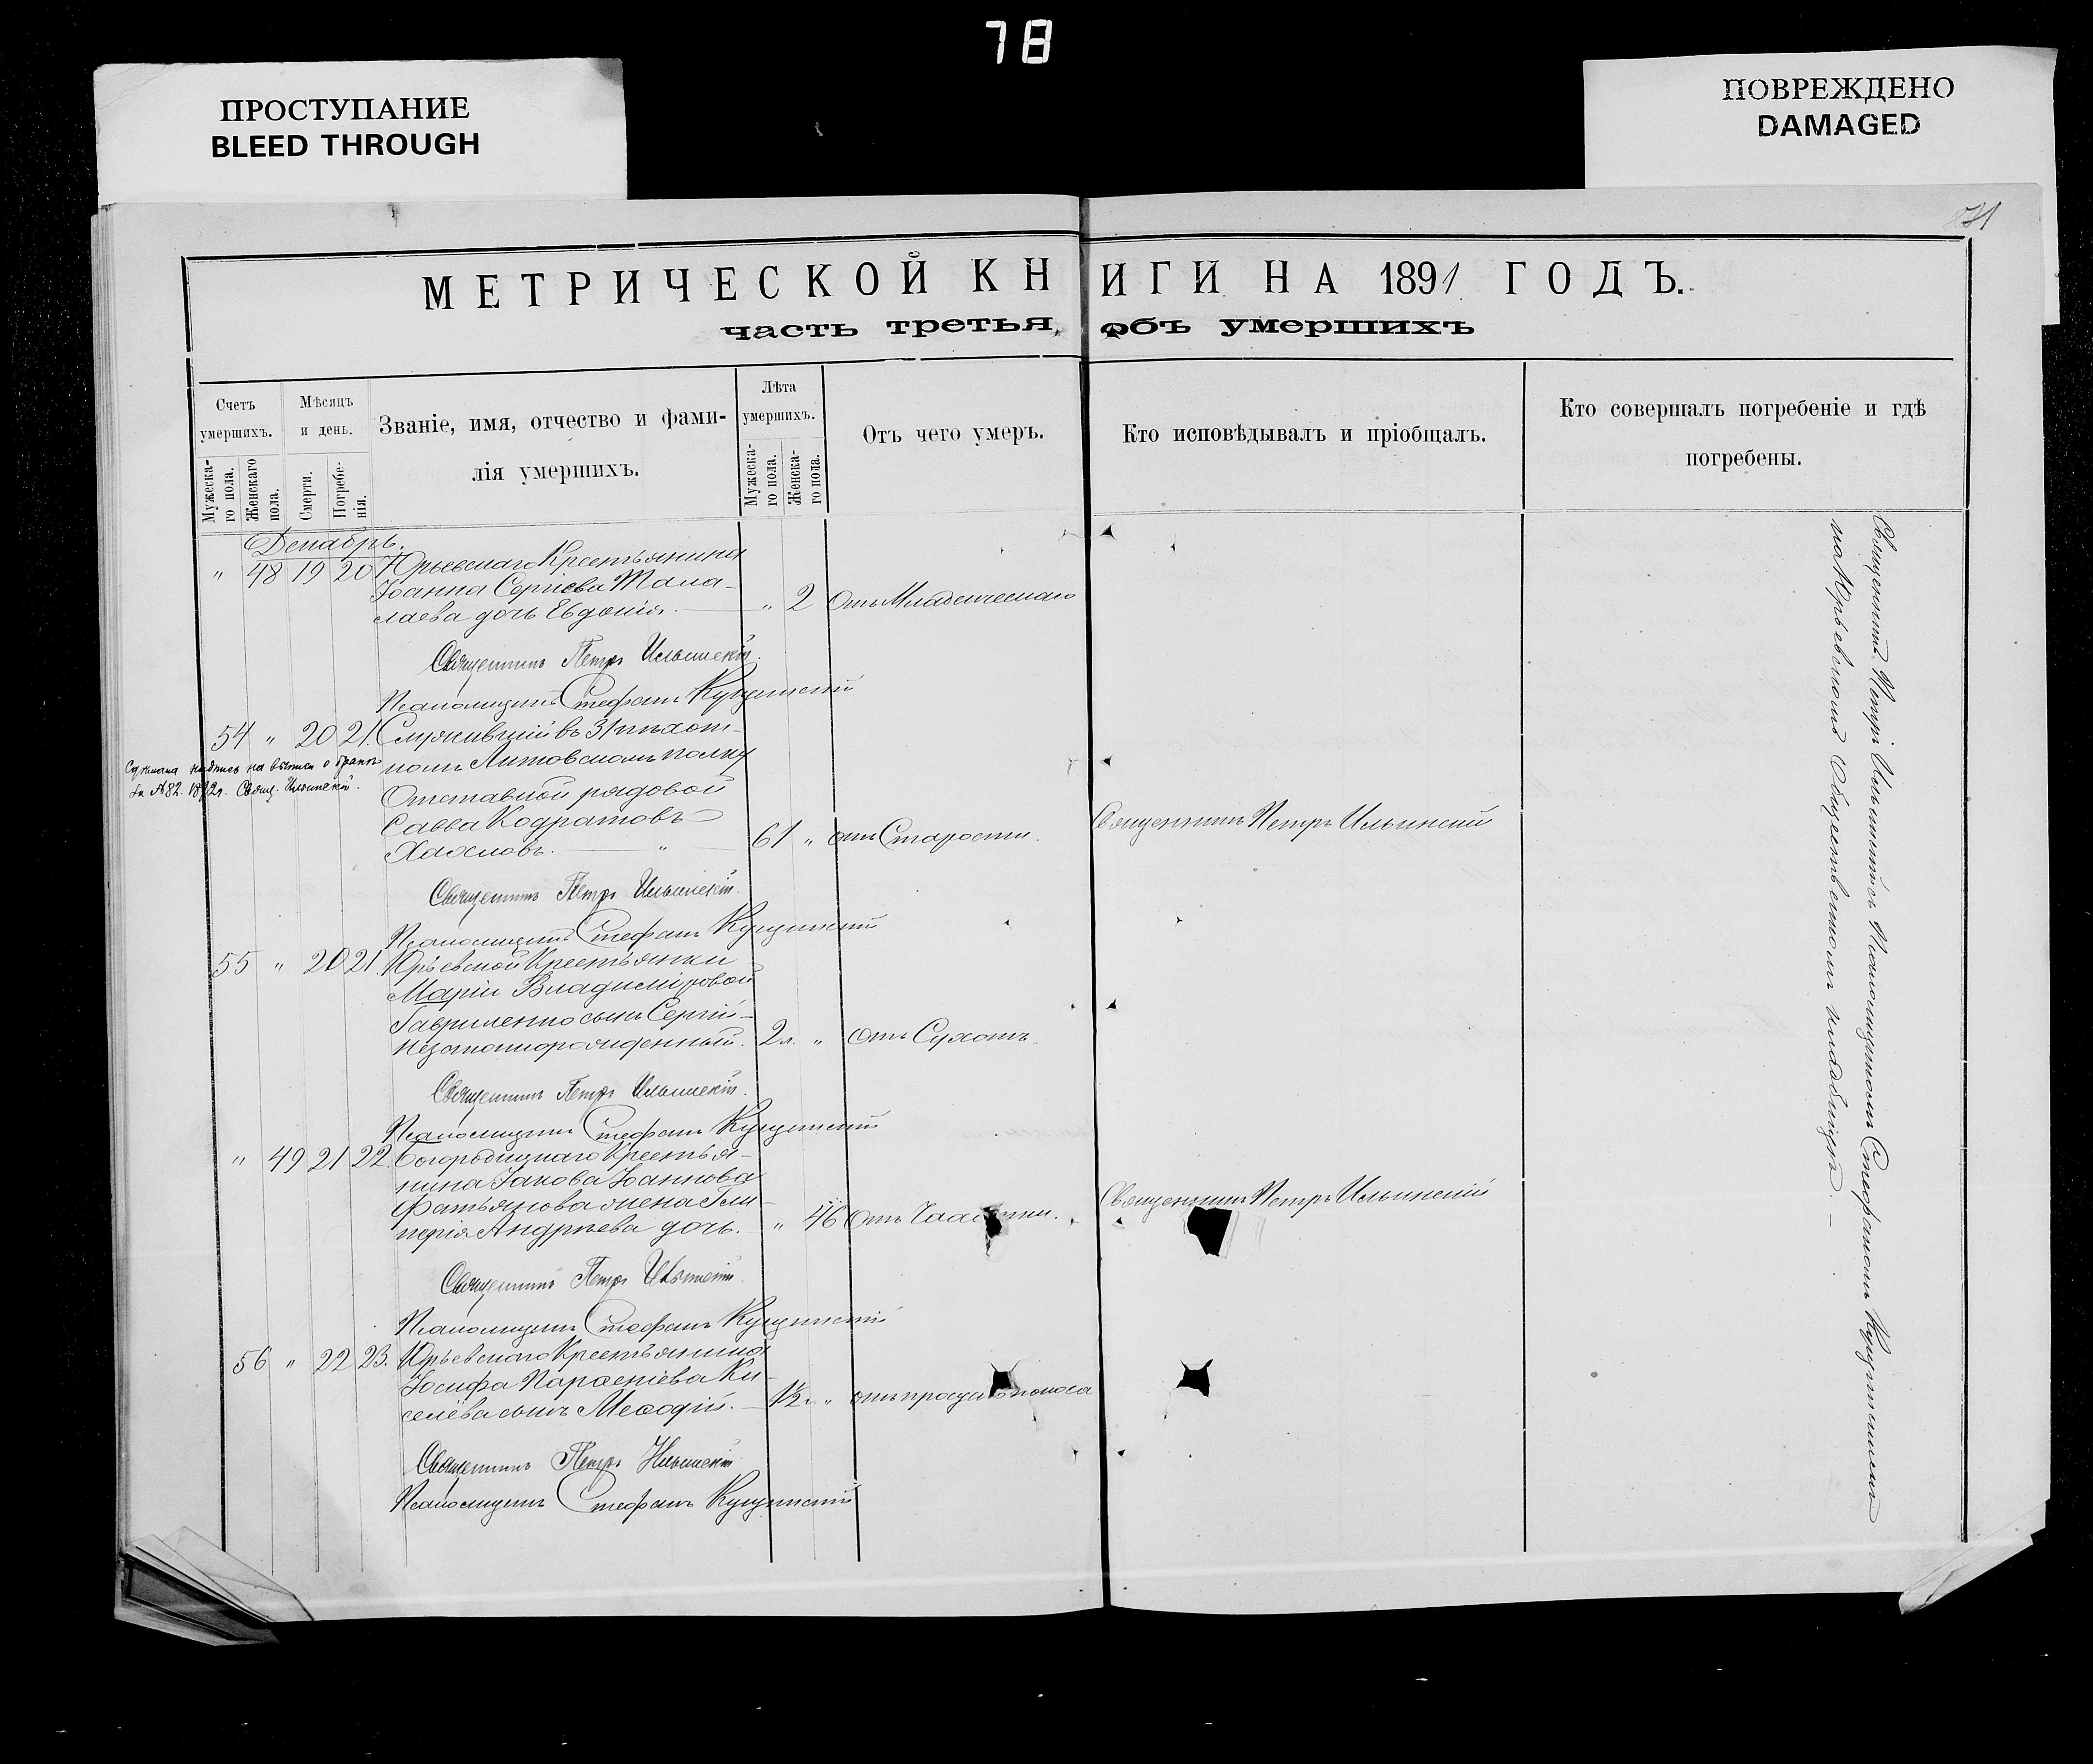 78
ПРОСТУПАНИЕ
BLEED THROUGH
ПОВРЕЖДЕНО
DAMAGED
МЕТРИЧЕСКОЙ КНИГИ НА 1891 ГОДЪ.
часть третья, объ умершихъ
Счетъ умершихъ.
Мужеска-го пола.
Женскаго пола.
Мѣсяцъ и день.
Смерти.
Погребе-нія.
Званіе, имя, отчество и фами-
лія умершихъ.
Лѣта умершихъ.
Мужеска-го пола.
Женска-го пола.
Отъ чего умеръ.
Кто исповѣдывалъ и пріобщалъ.
Кто совершалъ погребеніе и гдѣ
погребены.
Декабрь.
" 48 19 20 Юрьевскаго Крестьянина
Іоанна Сергіева
дочь Евдокія. " 2 Отъ Младенческаго
Священникъ Петръ Ильинскій.
Псаломщикъ Стефанъ
54 " 20 21. Служившій въ 31 пѣхот-
номъ полку
Отставной рядовой
Савва Кодратовъ
61 " отъ Старости. Священникъ Петръ Ильинскій
надпись на
№ 82. Свящ. Ильинскій.
Священникъ Петръ Ильинскій.
Псаломщикъ Стефанъ
55 " 20 21 Юрьевской Крестьянки
Маріи Владиміровой
Гавриленко сынъ Сергій
незаконнорожденный. 2 л. " отъ Сухотъ.
Священникъ Петръ Ильинскій.
Псаломщикъ Стефанъ
" 49 21 22. Богородицкаго Крестья-
нина Іакова Іоаннова
Фатьянова жена Гли-
керія Андреева дочь. " 46 Отъ Священникъ Петръ Ильинскій
Священникъ Петръ Ильинскій.
Псаломщикъ Стефанъ
56 " 22 23. Юрьевскаго Крестьянина
Іосифа Парѳеніева Ки-
селёва сынъ Меѳодій. 1/2 г. " отъ поноса
Священникъ Петръ Ильинскій
Псаломщикъ Стефанъ
Священникъ Петръ Ильинскій съ Псаломщикомъ Стефаномъ
на Юрьевскомъ Общественномъ кладбищѣ.